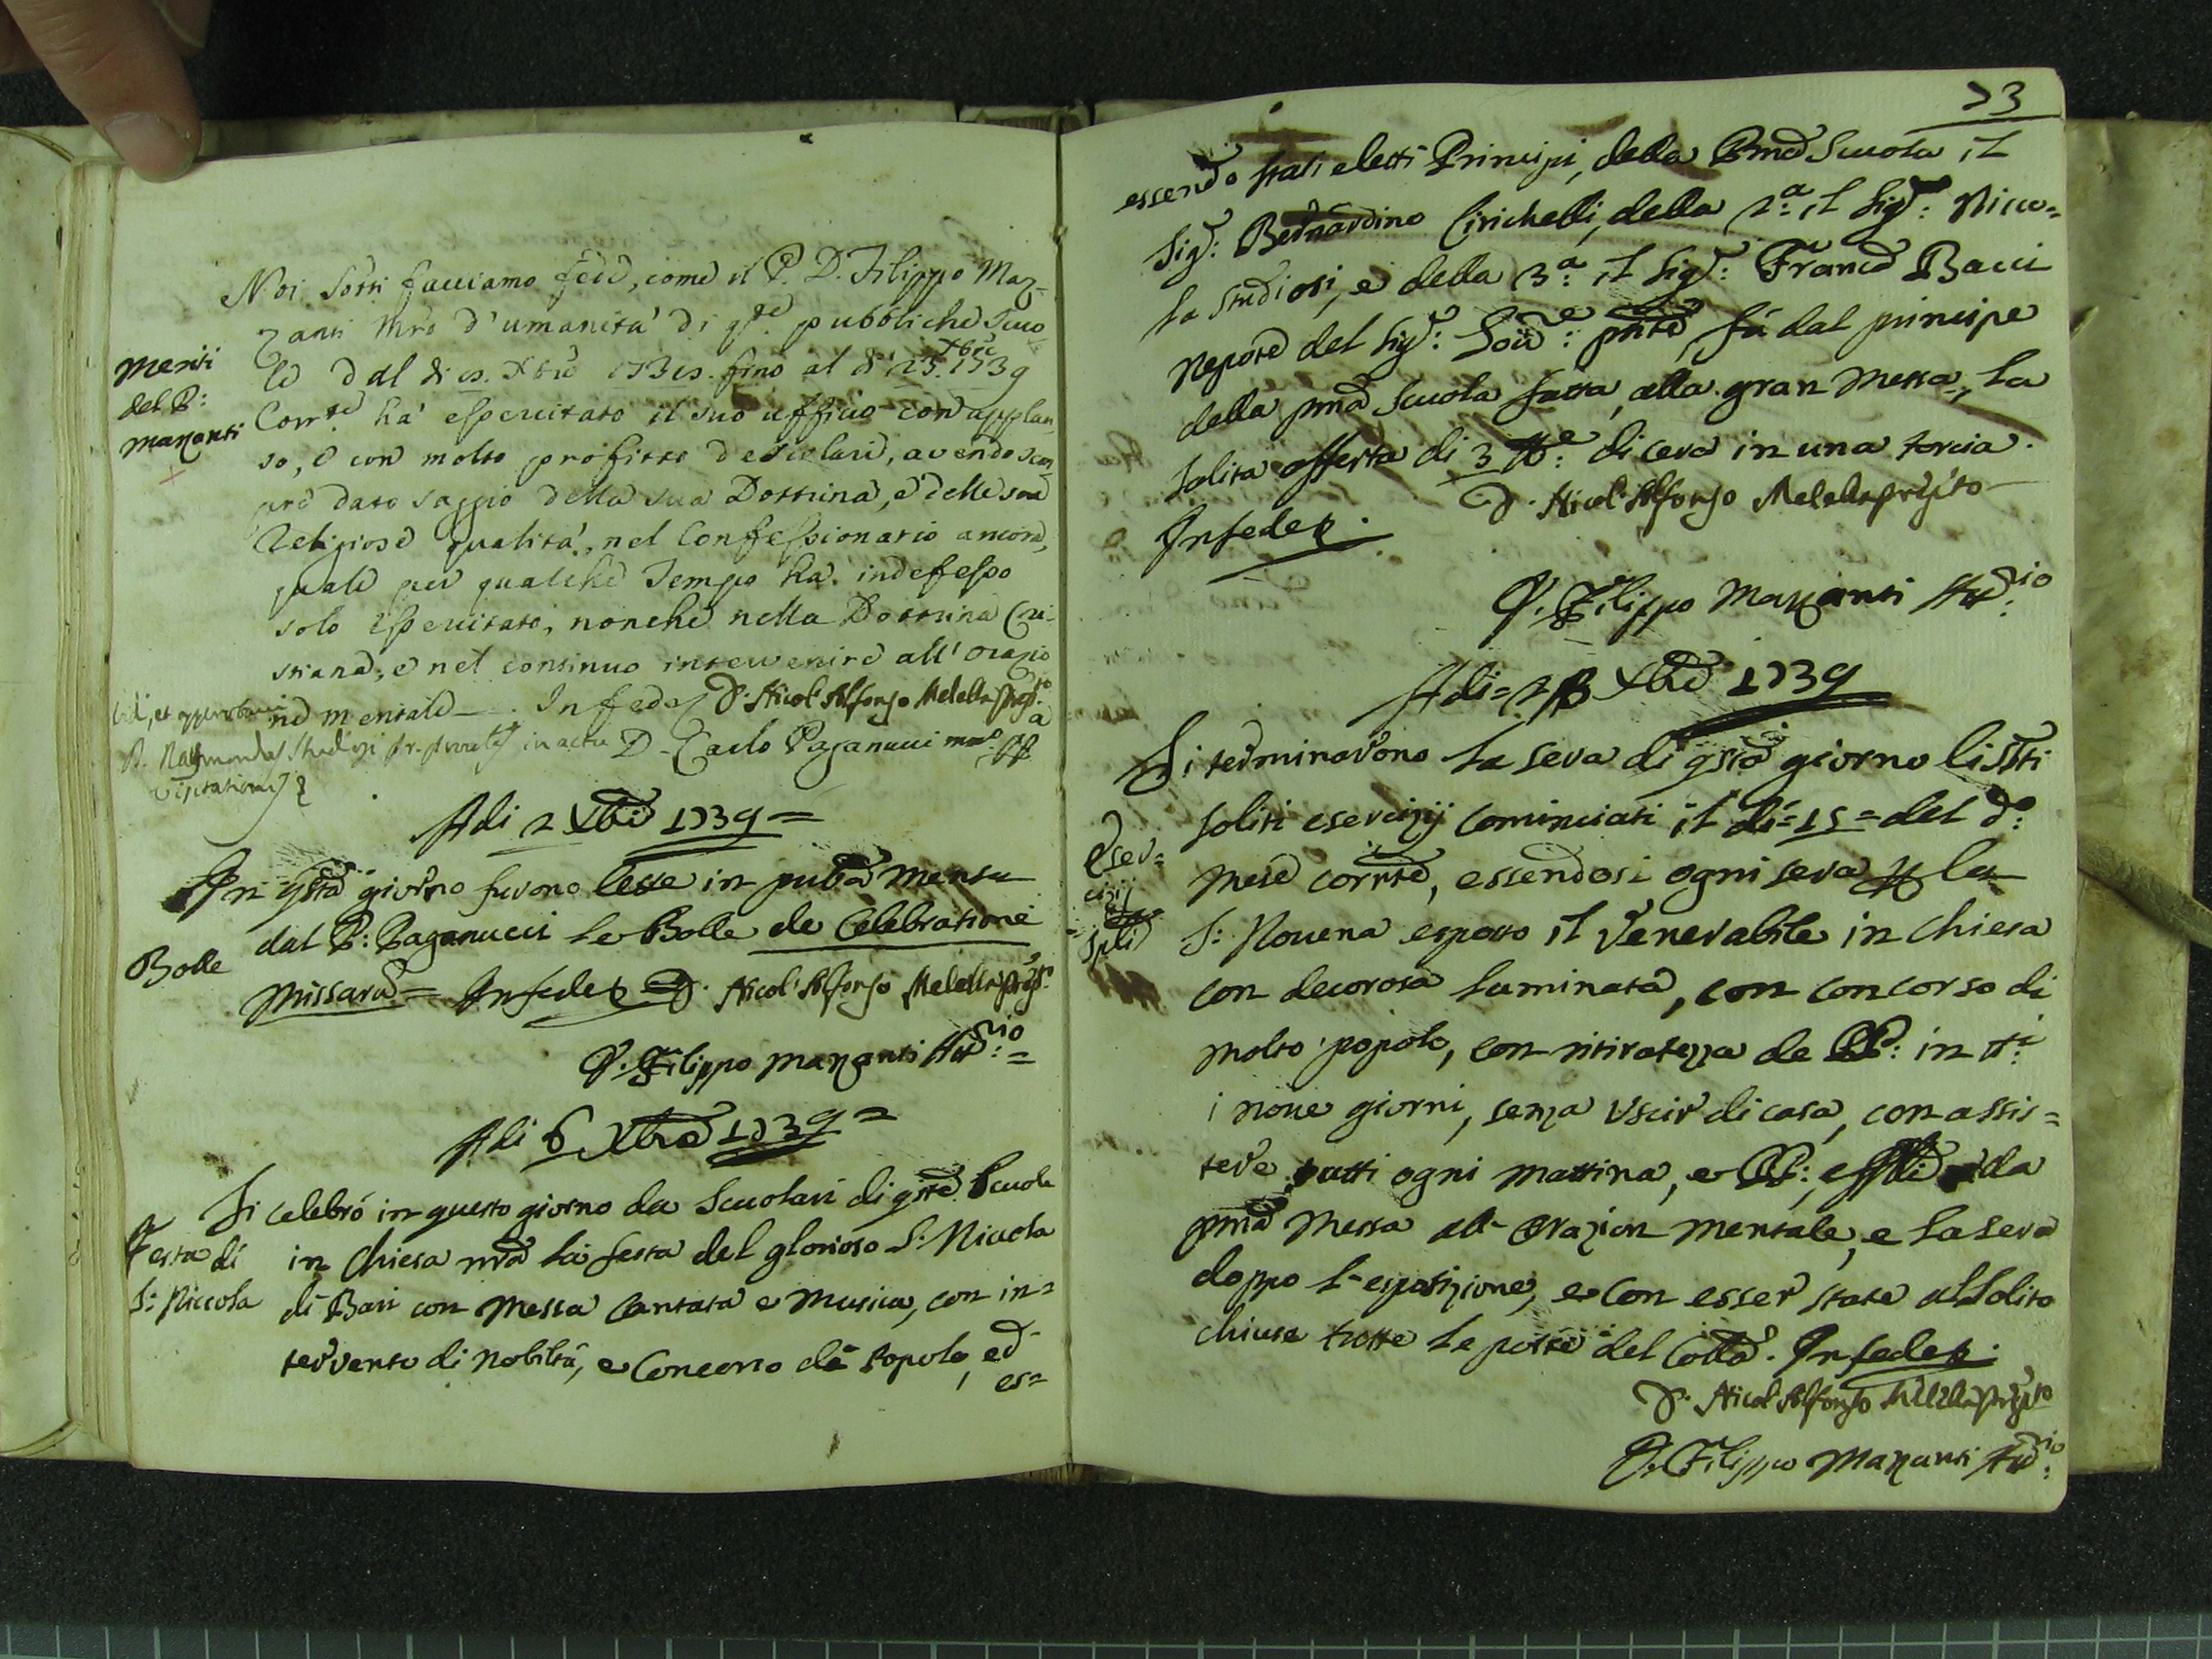 Noi sotti facciamo fede, come il P. D. Filippo Maz-
zanti Mro d'umanità di qste pubbliche Scuo
le dal di Xbre fino al di 25. Xbre 1739
Corrte ha' essercitato il suo ufficio con applau-
so, e con molto profitto de Scolari, avendo
pre dato saggio della sua Dottrina, e delle sue
Religiose qualità, nel Confessionario ancora,
quale per qualche Tempo ha' indefesso
solo essercitato, nonche nella Dottrina Cri-
stiana, e nel continuo intervenire all' Orazio
ne mentale. In fede D. Nicol' Alfonso Melella Preposto
D. Carlo Paganucci
Meriti
del P:
Mazzanti
Vidi, et approbavi
visitationis
Adi 2 Xbre 1739 =
In qsto giorno furono lesse in pubca mensa
dal P: Paganucci le Bolle de Celebratione
Missarū = In fede D. Nicol' Alfonso Melella Preposto
D. Filippo Mazzanti Attrio =
Bolle
Adi 6 Xbre 1739 =
Si celebrò in questo giorno da Scuolari di qste Scuole
in Chiesa nra la festa del glorioso S: Niccola
di Bari con Messa Cantata e Musica, con in=
tervento di Nobiltà, e Concorso de Popolo, ed
es=
Festa di
S: Niccola
73
essendo stati eletti Principi, della Pma Scuola il
Sigr: Bernardino Cirichelli, della 2a: il Sigr: Nicco=
la Studiosi, e della 3a: il Sigr: Franco Bacci
Nepote del Sigr: pnte, fù dal principe
della pma Scuola fatta, alla gran Messa, la
solita offerta di 3 lbe: di cera in una torcia.
In fede D. Nicol' Alfonso Melella Preposto
D. Filippo Mazzanti Attrio:
Adi = 23 Xbre 1739
Si terminarono la sera di qsto giorno li Stti
soliti esercizij cominciati il dì = 15 = del do:
mese corrnte, essendosi ogni sera p la
S: Novena esposto il Venerabile in Chiesa
con decorosa luminata, con concorso di
molto popolo, con ritiratezza de PP: in tti:
i nove giorni, senza uscir di casa, con assis=
tere tutti ogni mattina, e PP:, e da
pma Messa all' Orazion mentale, e la sera
doppo l'esposizione, e con esser state al solito
chiuse tutte le porte del Collo. In fede
D. Nicol' Alfonso Melella Preposto
D. Filippo Mazzanti Attrio:
Eser=
cizij
spli